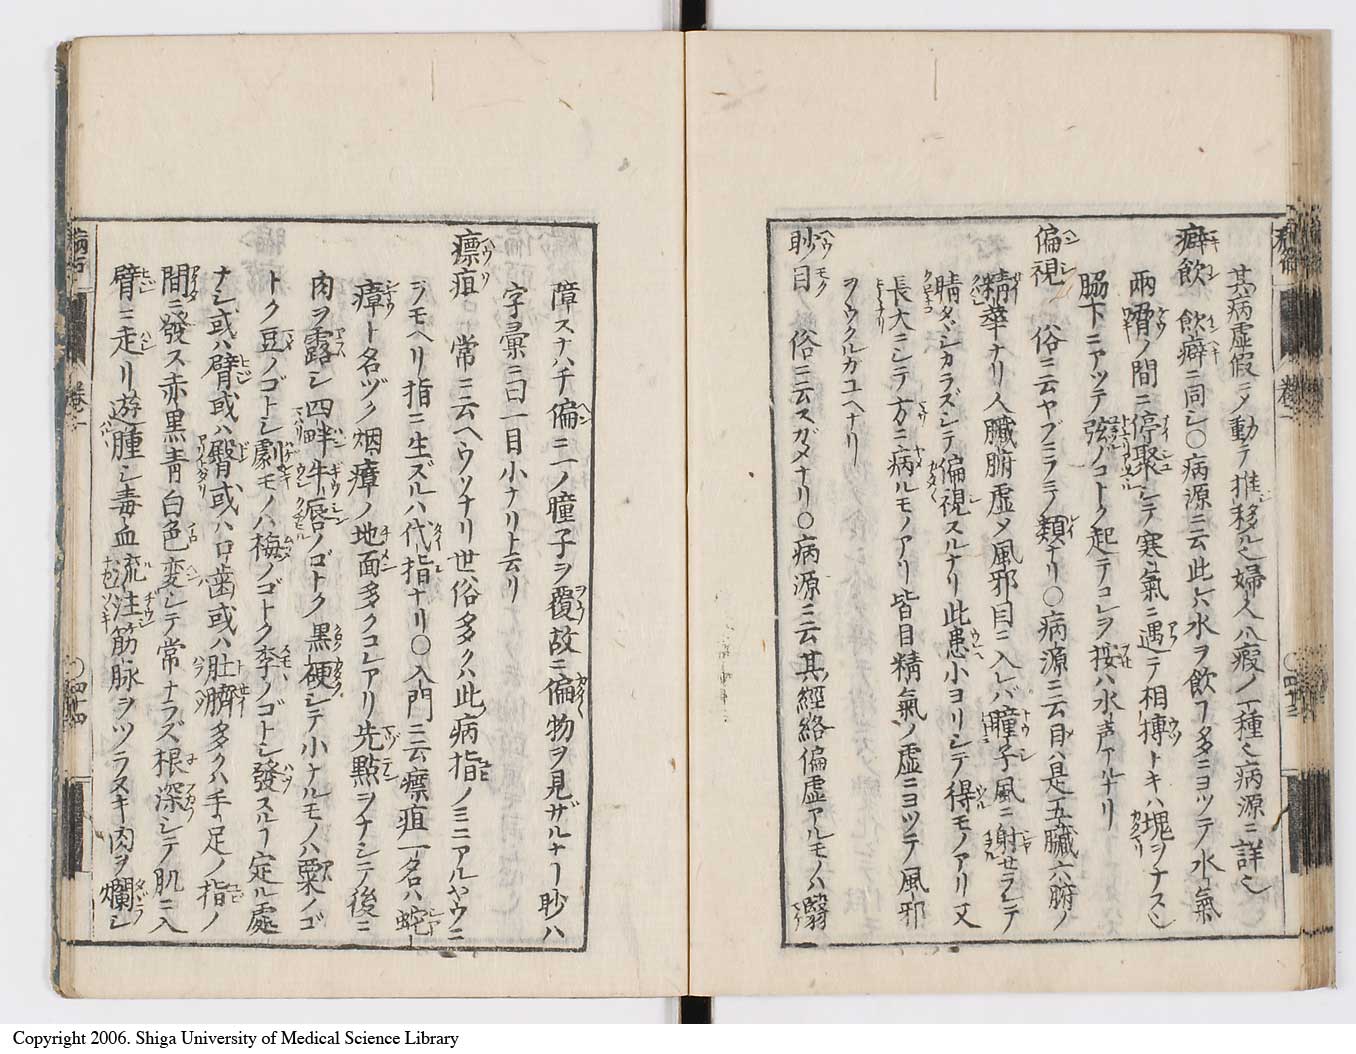 其病虚假ニメ動テ推移ル也婦人八瘕ノ一種也病源ニ詳也
癖飲 飲癖ニ同シ〇病源ニ云此レハ水ヲ飲フ多ニヨツテ水氣
兩脇ノ間ニ停聚シテ寒氣ニ遇テ相搏トキハ塊ヲナス也
脇下ニアツテ弦ノコトク起テコレヲ按ハ水声アルナリ
偏視 俗ニ云ヤブニラミノ類ナリ〇病源ニ云目ハ是五臓六腑ノ
精華ナリ人臓腑虚メ風邪目ニ入レバ瞳子風ニ射セラレテ
睛タヾシカラズシテ偏視スルナリ此患小ヨリシテ得モノアリ又
長大ニシテ方ニ病ルモノアリ皆目精氣ノ虚ニヨツテ風邪
ヲウクルガユヘナリ
眇目 俗ニ云スガメナリ〇病源ニ云其經絡偏虚アルモノハ翳
障スナハチ偏ニ一ノ瞳子ヲ覆故ニ偏物ヲ見ザルナー眇ハ
字彙ニ曰一目小ナリト云リ
瘭疽 常ニ云ヘウソナリ世俗多クハ此病指ノミニアルヤウニ
ヲモヘリ指ニ生ズルハ代指ナリ〇入門ニ云瘭疽一名ハ蛇
瘴ト名ヅク烟瘴ノ地面多クコレアリ先點ヲナシテ後ニ
肉ヲ露シ四畔牛唇ノゴトク黒硬シテ小ナルモノハ粟ノゴ
トク豆ノゴトシ劇モノハ梅ノゴトク李ノゴトシ發スルー定ル處
ナシ或ハ臂或ハ臀或ハ口齒或ハ肚臍多クハ手足ノ指ノ
間ニ發ス赤黒青白色変シテ常ナラズ根深シテ肌ニ入
臂ニ走リ遊腫シ毒血流注筋脉ヲツラヌキ肉ヲ爛シ
巻二
〇四十四
Copyright 2006. Shiga University of Medical Science Library